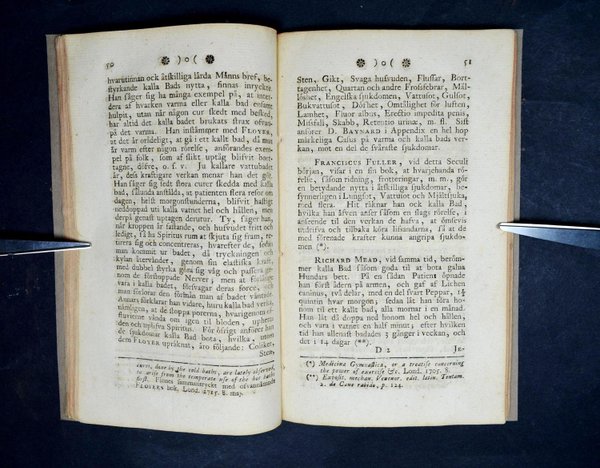 50 )o(
hvarutinnan ock åtskilliga lärda Männs bref, be-
styrkande kalla Bads nytta, finnas inryckte.
Han säger sig ha många exempel på, at inten-
dera af hvarken varma eller kalla bad ensamt
hulpit, utan når någon cur skedt med beskied,
har altid det kalla badet brukats strax ofvan-
på det varma. Han instämmer med FLOYER,
ut det är orådeligt, at gå i ett kallt bad, då man
är varm efter någon rörelse, anförandes exem-
pel på folk, som af slikt uptåg blifvit bort-
tagne, döfve, o. s. v. Ju kallare vattubadet
är, dess kraftigare verkan menar han det gör.
Han säger sig sedt flera curer skedda med kalla
bad, sålunda anstälda, at patienten flera resor om
dagen, helst morgonstunderna, blifvit hastigt
neddoppad uti kalla vatnet hel och hållen, men
derpå genast uptagen derutur. Ty, säger han,
når kroppen är fastande, och husvudet fritt och
ledigt, få ha Spiritus rum at skjuta sig fram, re-
turera sig och concentreras, hvarefter de, sedan
man kommit ur badet, då tryckningen och
kylan återvänder, genom sin elastiska kraft,
med dubbel styrka göra sig våg och passera ge-
nom de förstoppade Nerver; men at förlänge
vara i kalla badet, försvagar deras force, och
man förlorar den förmån man af badet väntade.
Annars förklarar han vidare, huru kalla bad verka,
nämligen, at de stoppa pororna, hvarigenom ef-
fluvierna vända om igen til bloden, uphetta
den och uplysva Spiritus. För öfrigt anförer han
de sjukdomar kalla Bad bota, hvilka, utom
dem FLOYER upräknat, äro följande: Coliker,
Sten,
cures, done in the cold baths, are falsely observed,
to arise from the temperate use of the hot baths
first. Finnes sammantryckt med ofvannämnde
FLOYERS bok, Lond. 1715. 8. m27.
)o( 51
Sten, Gikt, Svaga husvuden, Flussar, Bort-
tagenhet, Quartan och andre Frossfebrar, Mål-
löshet, Engelska sjukdomen, Vattusot, Gulsot,
Bukvattusot, Döfhet, Ömtålighet för luften,
Lamhet, Fluor albus, Erectio impedita penis,
Missfall, Skabb, Retentio urinæ, m. fl. Sist
anförer D. BAYNARD i Appendix en hel hop
mirkeliga Casus på varma och kalla bads ver-
kan, mot en del de svåraste sjukdomar.
FRANCISCUS FULLER, vid detta Seculi
början, visar i en sin bok, at hvarjehanda rö-
relse, såsom ridning, frotteringar, m. m. gör
en betydande nytta i åtskilliga sjukdomar, be-
synnerligen i Lungsot, Vattusot och Mjältsjuka,
med flera. Hit räknar han ock kalla Bad,
hvilka han äfven anser såsom en slags rörelse, i
anseende til den verkan de hafva, at ömsevis
undstöta och tilbaka köra lifsandarna, så at de
med förenade krafter kunna angripa sjukdo-
men (*).
RICHARD MEAD, vid samma tid, beröm-
mer kalla Bad såsom goda til at bota galna
Hundars bett. På en sådan Patient öpnade
han först ådern på armen, och gaf af Lichen
caninus, två delar, med en del svart Peppar, 1½
quintin hvar morgon; sedan låt han föra ho-
nom til ett kallt bad, alla mornar i en månad.
Han låt då doppa ned honom hel och hållen,
och vara i vatnet en half minut; efter hvilken
tid han allenast badades 3 gånger i veckan, och
det i 14 dagar (**).
D 2 JE-
(*) Medicina Gymnastica, or a treatise concerning
the power of exercise &c. Lond. 1705. 8.
(**) Exposit. mechan. Venenor. edit. latin. Tentam.
2. de Cane rabido, p. 124.